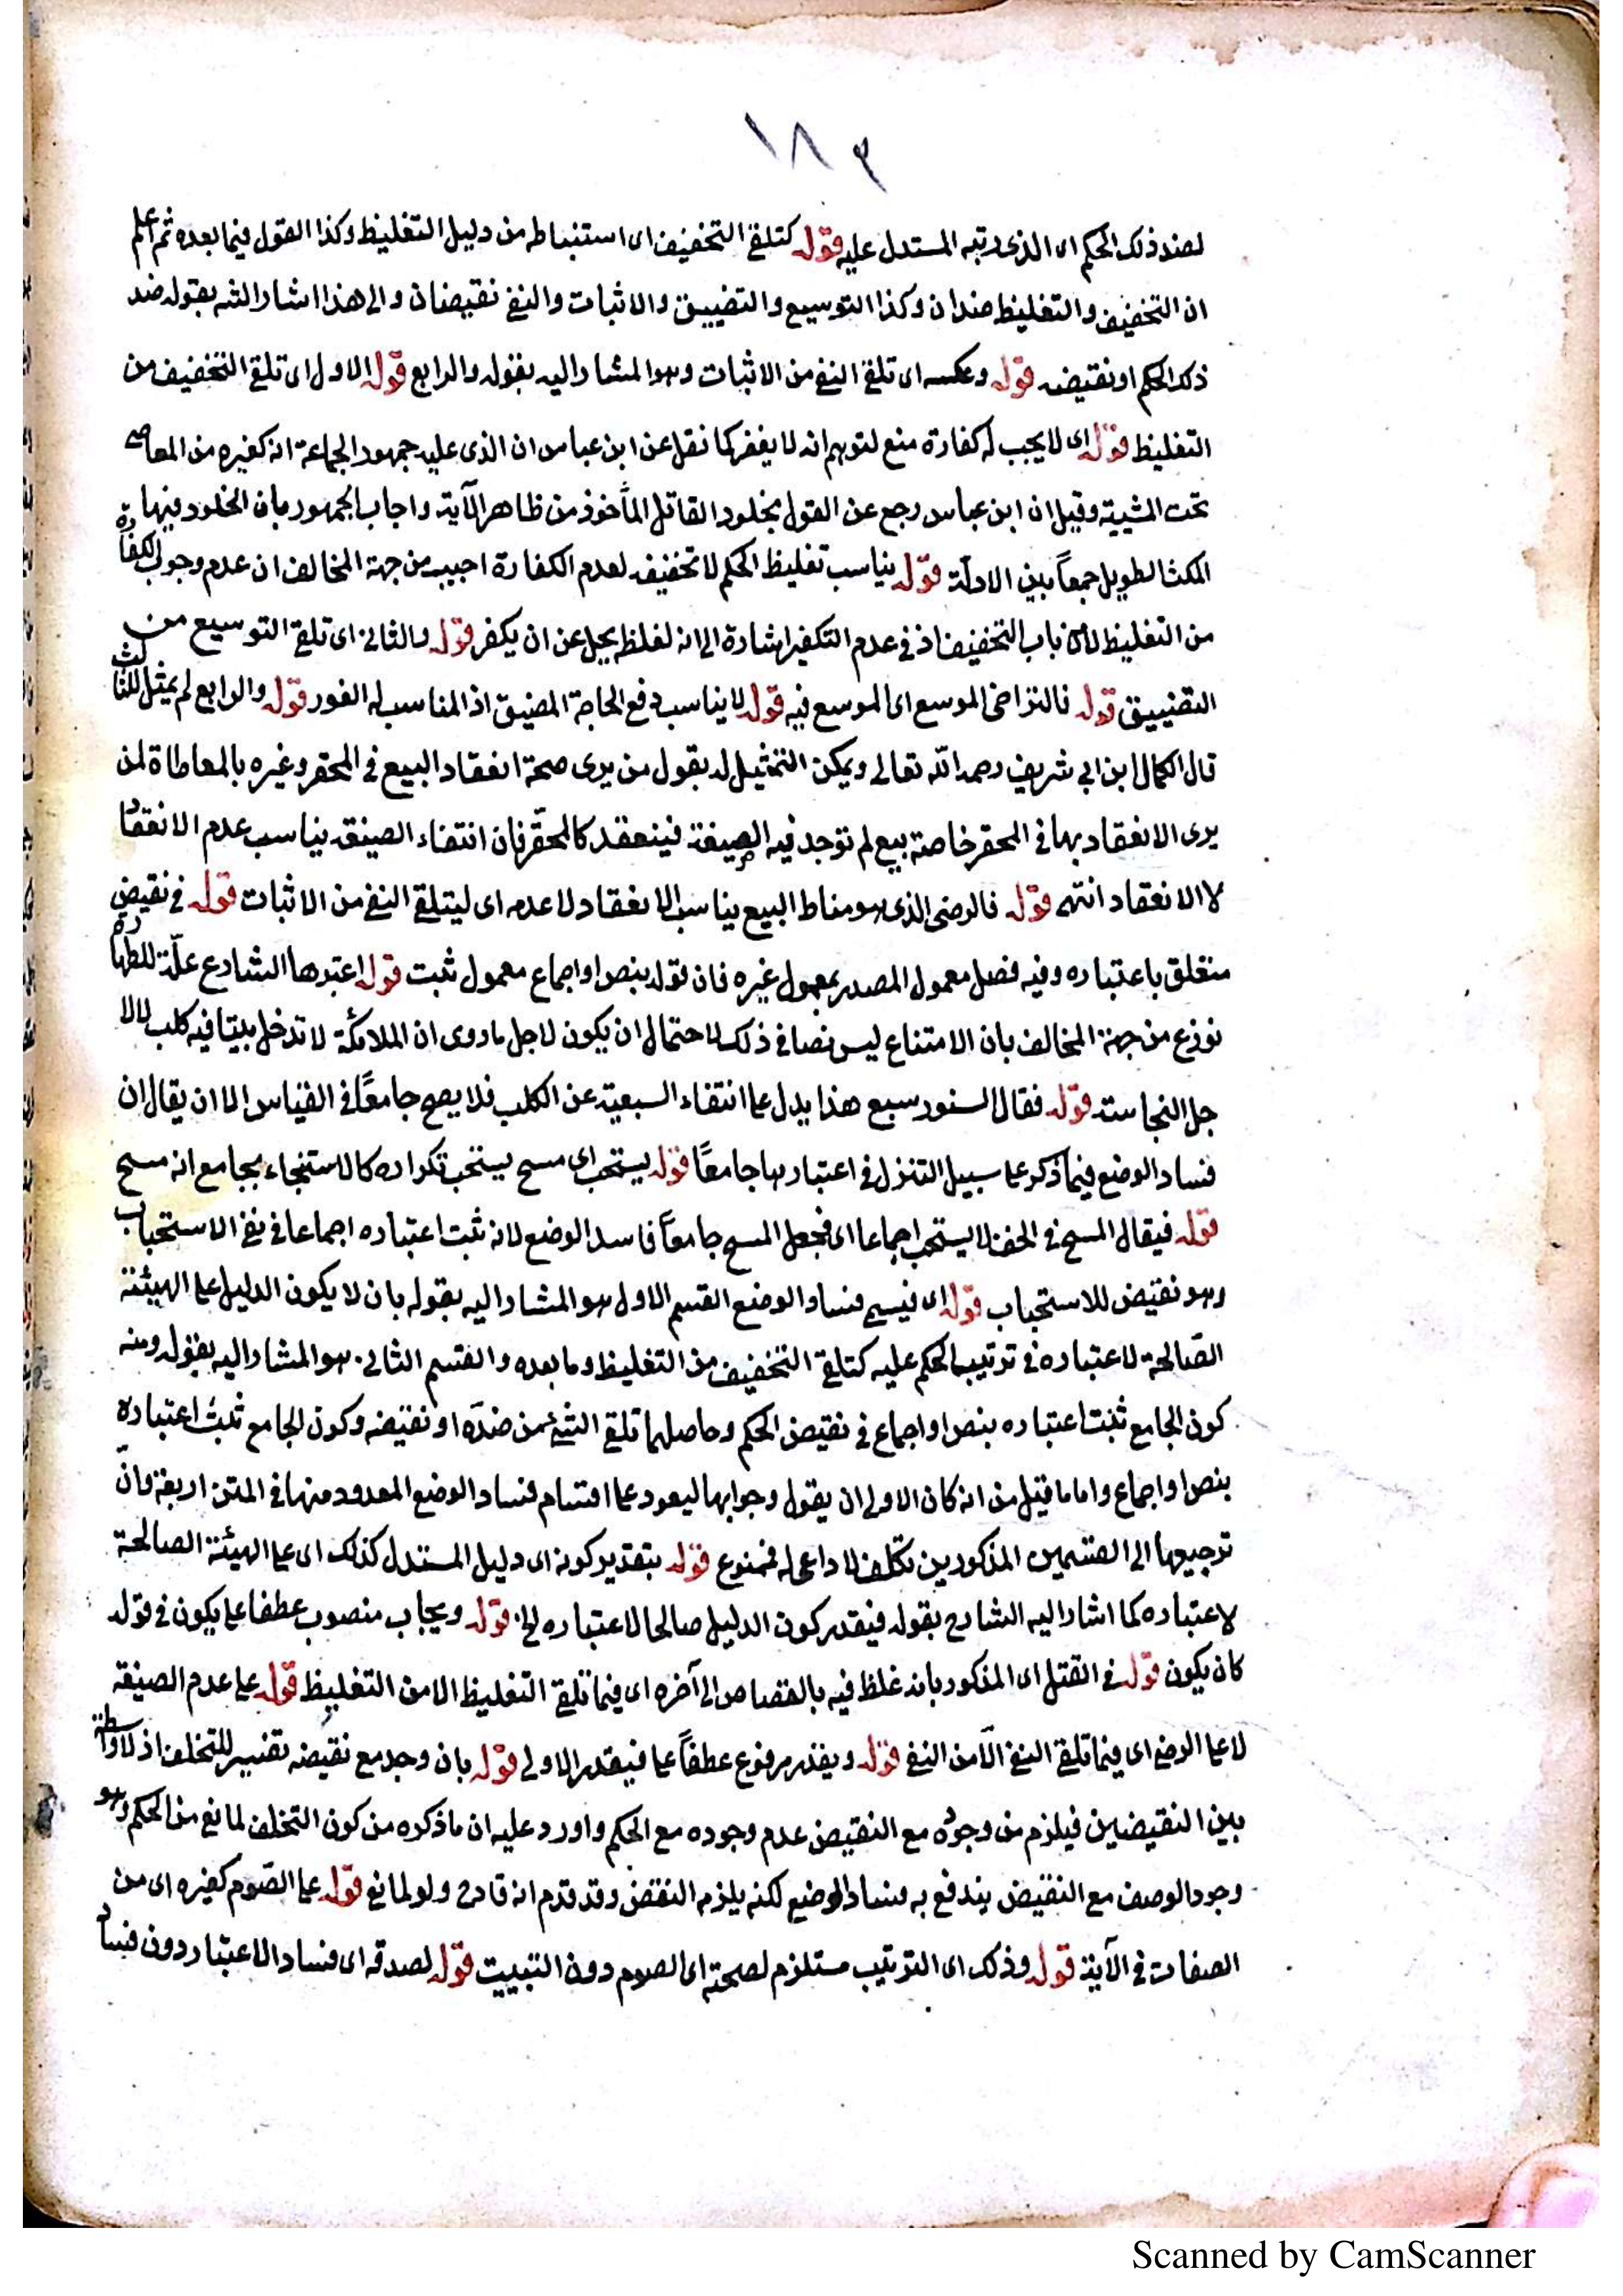 ١٨٣
لضد ذلك الحكم اى الذى رتبه المستدل عليه قوله كتلقى التخفيف اى استنباطه من دليل التغليظ وكذا القول فيما بعده ثم اعلم
ان التخفيف والتغليظ ضدان وكذا التوسيع والتضييق والاثبات والنفى نقيضان والى هذا اشار الشه بقوله ضد
ذلك الحكم او نقيضه قوله وعكسه اى تلقى النفى من الاثبات وهو المشار اليه بقوله والرابع قوله الاول اى تلقى التخفيف من
التغليظ قوله اى لا يجب له كفارة منع لتوهم انه لا يغفر كما نقل عن ابن عباس ان الذى عليه جمهور الجماعة انه كغيره من المعاصى
تحت المشيية وقيل ان ابن عباس رجع عن القول بخلود القاتل المأخوذ من ظاهر الآية واجاب الجمهور بان الخلود فيها
المكث الطويل جمعاً بين الادلة قوله يناسب تغليظ الحكم لا تخفيفه لعدم الكفارة اجيب من جهة المخالف ان عدم وجوب الكفارة
من التغليظ لا من باب التخفيف اذ فى عدم التكفير اشارة الى انه لغلظه يجل عن ان يكفر قوله والثانى اى تلقى التوسيع من
التضييق قوله فالتراخى الموسع اى الموسع فيه قوله لا يناسب دفع الحاجة المضيق اذ المناسب له الفور قوله والرابع لم يمثل للثالث
قال الكمال ابن ابى شريف رحمه الله تعالى ويمكن التمثيل له بقول من يرى صحة انعقاد البيع فى المحقر وغيره بالمعاطاة لمن
يرى الانعقاد بها فى المحقر خاصة بيع لم توجد فيه الصيغة فينعقد كالمحقر فان انتفاء الصيغة يناسب عدم الانعقاد
لا الانعقاد انتهى قوله فالرضى الذى هو مناط البيع يناسب الانعقاد لا عدمه اى ليتلقى النفى من الاثبات قوله فى نقيض
متعلق باعتباره وفيه فصل معمول المصدر بمعمول غيره فان قوله بنص او اجماع معمول ثبت قوله اعتبرها الشارع علة للطهارة
نوزع من جهة المخالف بان الامتناع ليس نصا فى ذلك لاحتمال ان يكون لاجل ما روى ان الملائكة لا تدخل بيتا فيه كلب لا لا
جل النجاسة قوله فقال السنور سبع هذا يدل على انتفاء السبعية عن الكلب فلا يصح جامعاً فى القياس الا ان يقال ان
فساد الوضع فيما ذكر على سبيل التنزل فى اعتبارها جامعاً قوله يستحب اى مسح يستحب تكراره كالاستنجاء بجامع انه مسح
قوله فيقال المسح فى الخف لا يستحب اجماعا اى فجعل المسح جامعاً فاسد الوضع لانه ثبت اعتباره اجماعا فى نفى الاستحباب
وهو نقيض للاستحباب قوله اى قسيمى فساد الوضع القسم الاول هو المشار اليه بقوله بان لا يكون الدليل على الهيئة
الصّالحة لاعتباره فى ترتيب الحكم عليه كتلقى التخفيف من التغليظ وما بعده والقسم الثانى هو المشار اليه بقوله ومنه
كون الجامع ثبت اعتباره بنص او اجماع فى نقيض الحكم وحاصلهما تلقى الشئ من ضده او نقيضه وكون الجامع ثبت اعتباره
بنص او اجماع واما ما قيل من انه كان الاولى ان يقول وجوابها ليعود على اقسام فساد الوضع المعدود منها فى المتن اربعة وانّ
ترجيعها الى القسمين المذكورين تكلف لا داعى له فممنوع قوله بتقدير كونه اى دليل المستدل كذلك اى على الهيئة الصالحة
لاعتباره كما اشار اليه الشارح بقوله فيقدر كون الدليل صالحا لاعتباره الخ قوله ويجاب منصوب عطفا على يكون فى قوله
كان يكون قوله فى القتل اى المذكور بانه غلظ فيه بالقصاص الى آخره اى فيما تلقى التغليظ الا من التغليظ قوله على عدم الصيغة
لا على الرضى اى فيما تلقى النفى الّا من النفى قوله ويقدر مرفوع عطفاً على فيقدر الاولى قوله بان وجد مع نقيضه تفسير للتخلف اذ لا واسطة
بين النقيضين فيلزم من وجوده مع النقيض عدم وجوده مع الحكم واورد عليه ان ما ذكره من كون التخلف لمانع من الحكم وهو
وجود الوصف مع النقيض يندفع به فساد الوضع لكنه يلزم النقض وقد قدم انه قادح ولو لمانع قوله على الصّوم كغيره اى من
الصفات فى الآية قوله وذلك اى الترتيب مستلزم لصحته اى الصوم دون التبييت قوله لصدقه اى فساد الاعتبار دون فساد
Scanned by CamScanner